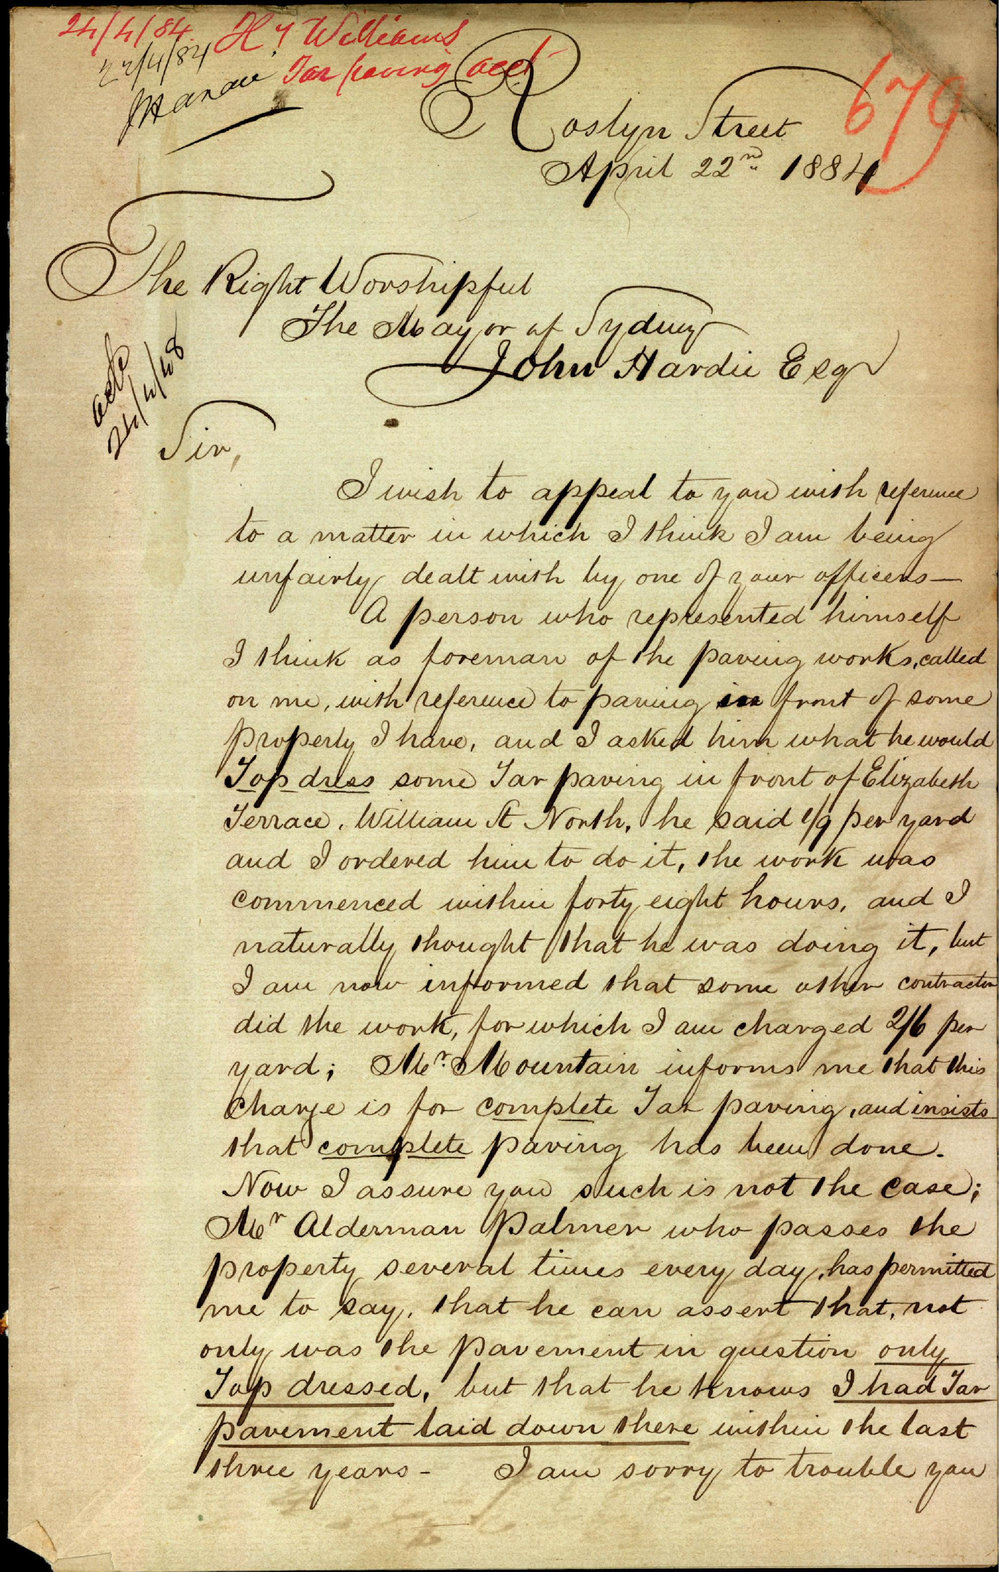 24/4/84 Hy Williams
22/4/84 Tar paving acct
679
Roslyn Street
April 22nd. 1884
The Right Worshipful
The Mayor of Sydney
John Hardie Esqr
24/4/
Sir,
I wish to appeal to you with reference
to a matter in which I think I am being
unfairly dealt with by one of your officers—
A person who represented himself
I think as foreman of the paving works, called
on me, with reference to paving in front of some
property I have, and I asked him what he would
Top dress some Tar paving in front of Elizabeth
Terrace, William St North, he said 1/9 per yard
and I ordered him to do it, the work was
commenced within forty eight hours, and I
naturally thought that he was doing it, but
I am now informed that some other contractor
did the work, for which I am charged 2/6 per
yard; Mr. Mountain informs me that this
charge is for complete Tar paving, and insists
that complete paving has been done.
Now I assure you such is not the case;
Mr Alderman Palmer who passes the
property several times every day, has permitted
me to say, that he can assert that, not
only was the pavement in question only
Top dressed, but that he knows I had Tar
pavement laid down there within the last
three years - I am sorry to trouble you